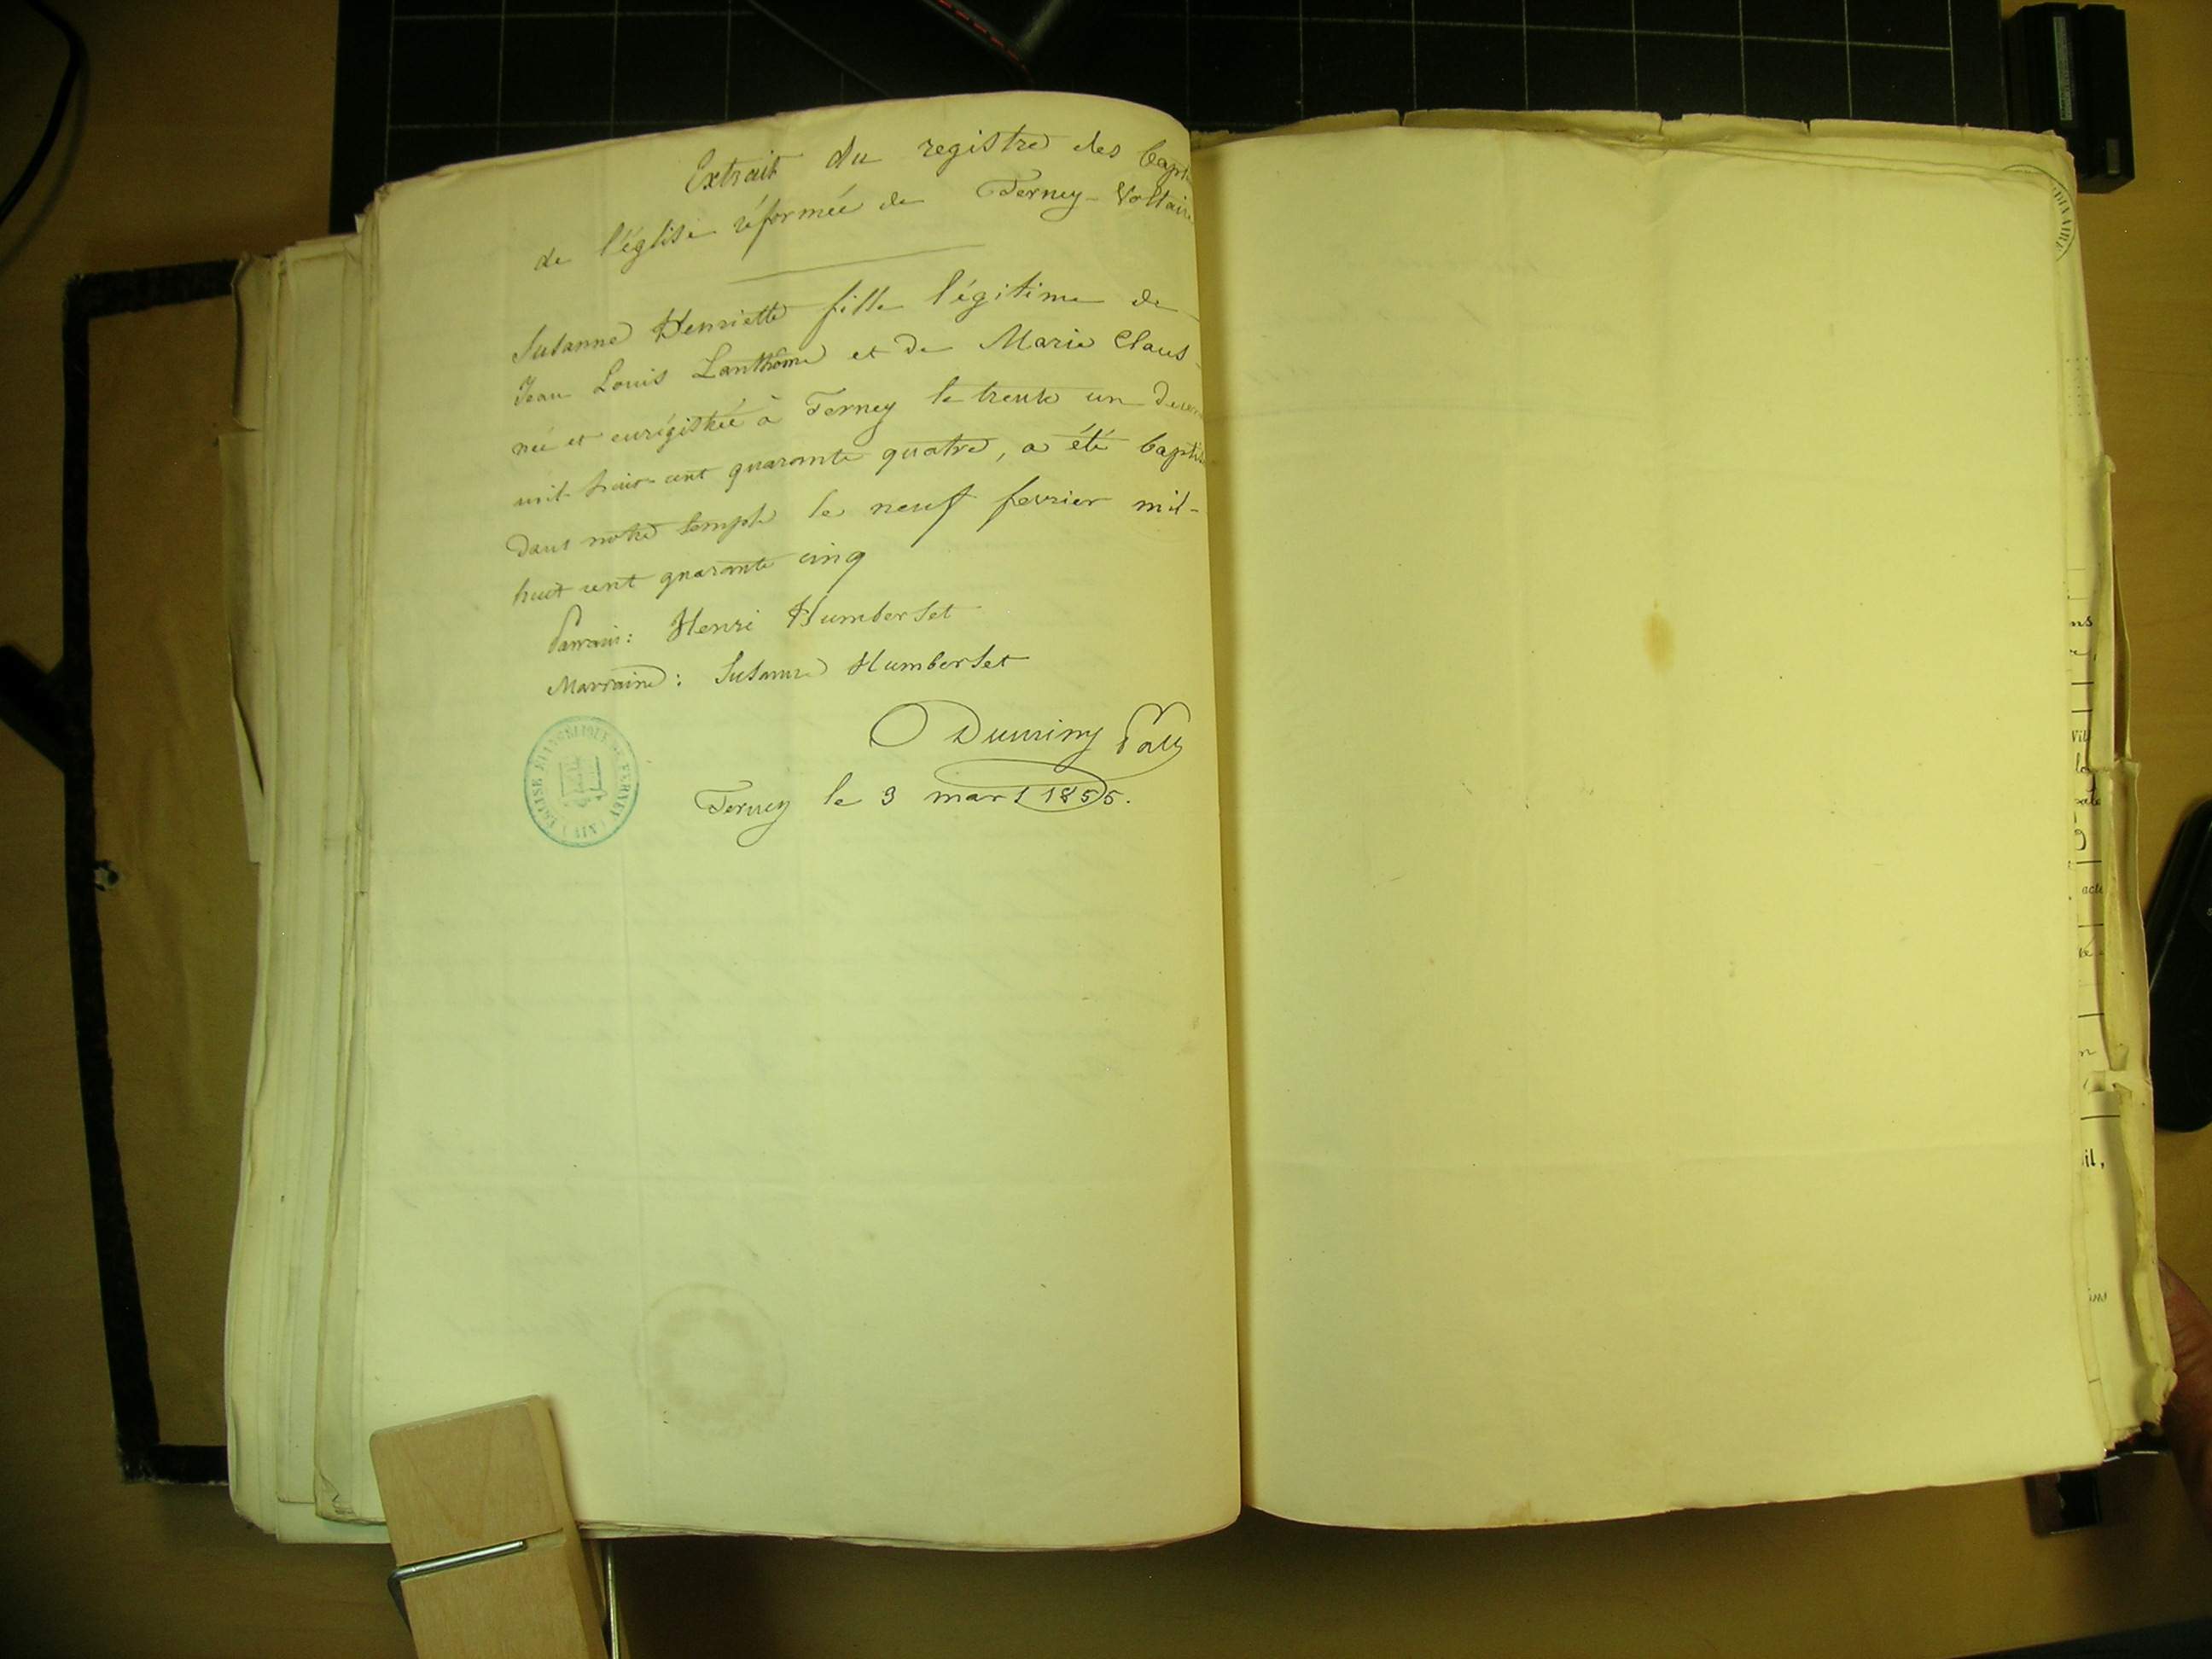 Extrait du registre des bapt
de l'église réformée de Ferney-Voltaire
Susanne Henriette fille légitime de
Jean Louis Lanthôme et de Marie Claus
née et enrégistrée à Ferney le trente un
mil huit cent quarante quatre, a été bapti
dans notre temple le neuf fevrier mil-
huit cent quarante cinq
Parrain: Henri Humberset
Marraine: Susanne Humberset
Ferney le 3 mars 1855.
EGLISE EVANGELIQUE DE FERNEY (AIN)
il,